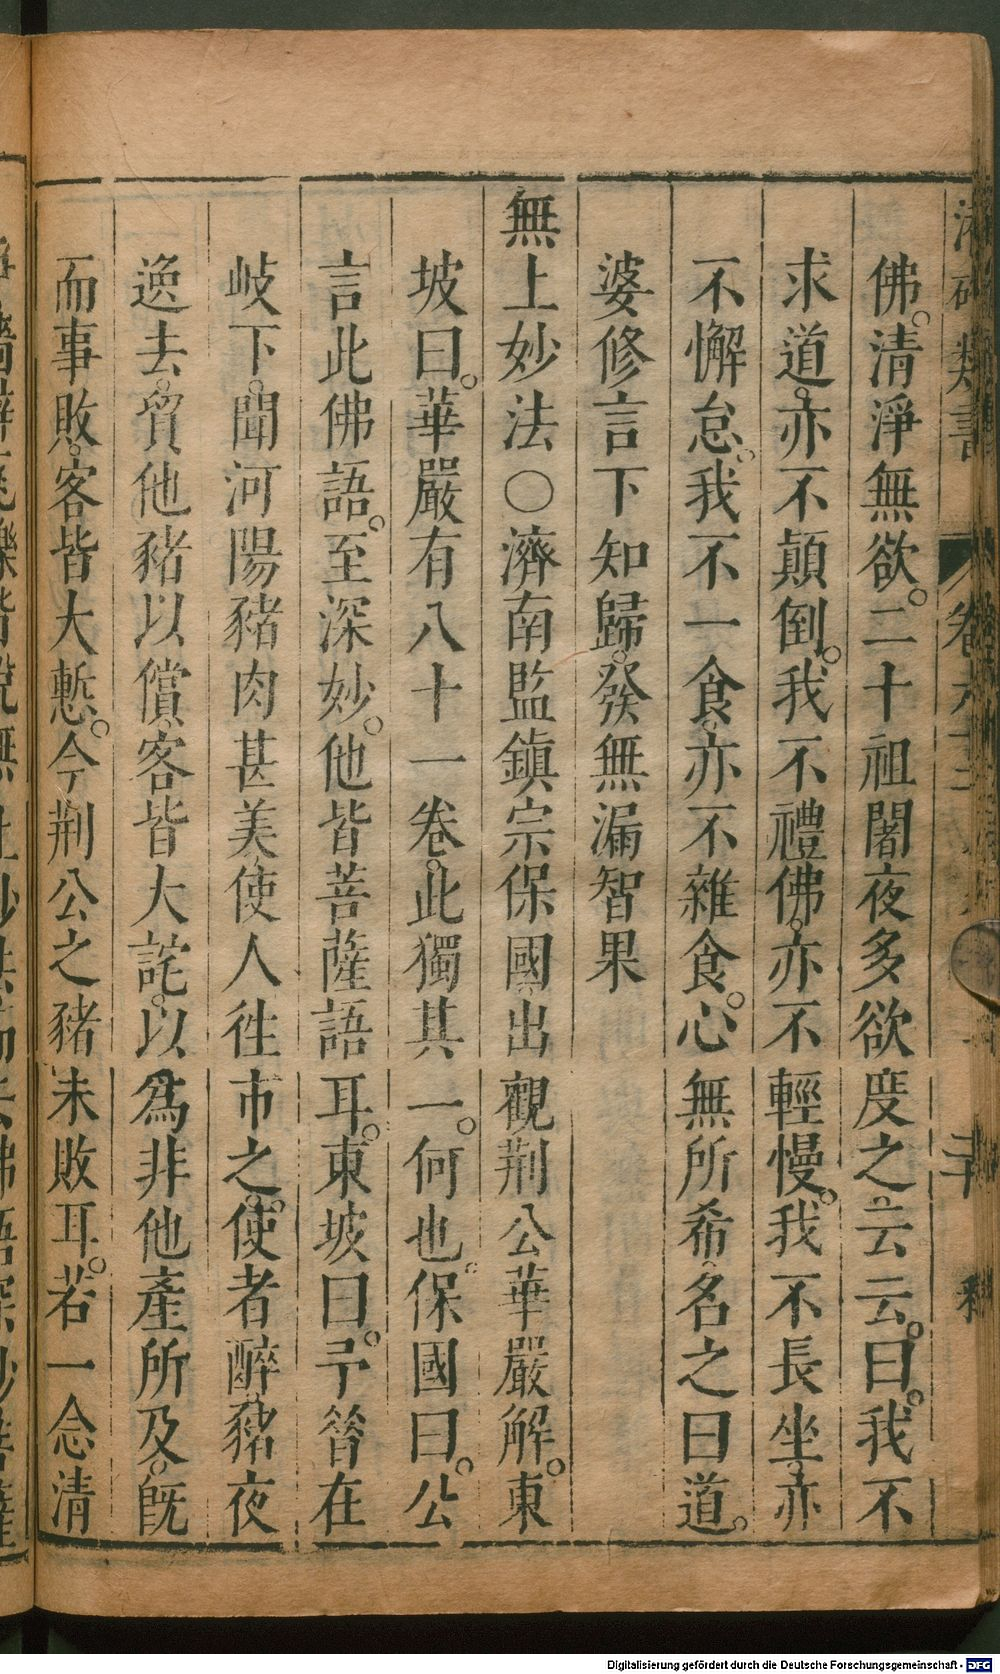 佛。清淨無欲。二十祖闍夜多欲度之。云云。曰。我不
求道。亦不顛倒。我不禮佛。亦不輕慢。我不長坐。亦
不懈怠。我不一食。亦不雜食。心無所希。名之曰道。
婆修言下知歸。發無漏智果
無上妙法〇濟南監鎮宗保國出觀荆公華嚴解。東
坡曰。華嚴有八十一卷。此獨其一。何也。保國曰。公
言此佛語。至深妙。他皆菩薩語耳。東坡曰。予昝在
岐下。聞河陽豬肉甚美。使人徃市之。使者醉。豬夜
逸去。貿他豬以償。客皆大詫。以爲非他產所及。旣
而事敗。客皆大慙。今荆公之豬未敗耳。若一念清
類書
卷六十三
二十
Digitalisierung gefördert durch die Deutsche Forschungsgemeinschaft - DFG